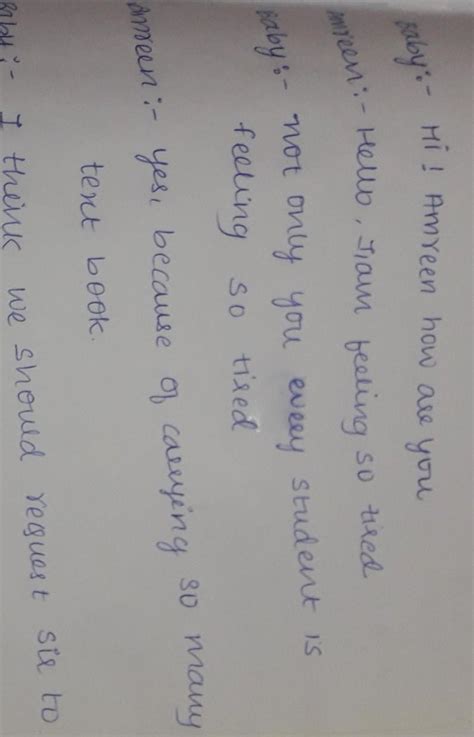 Baby:- Hi! Amreen how are you
Amreen:- Hello, I,am feeling so tired
Baby:- not only you every student is
feeling so tired
Amreen:- yes, because of carrying so many
text book.
Baby:- I think we should request sir to